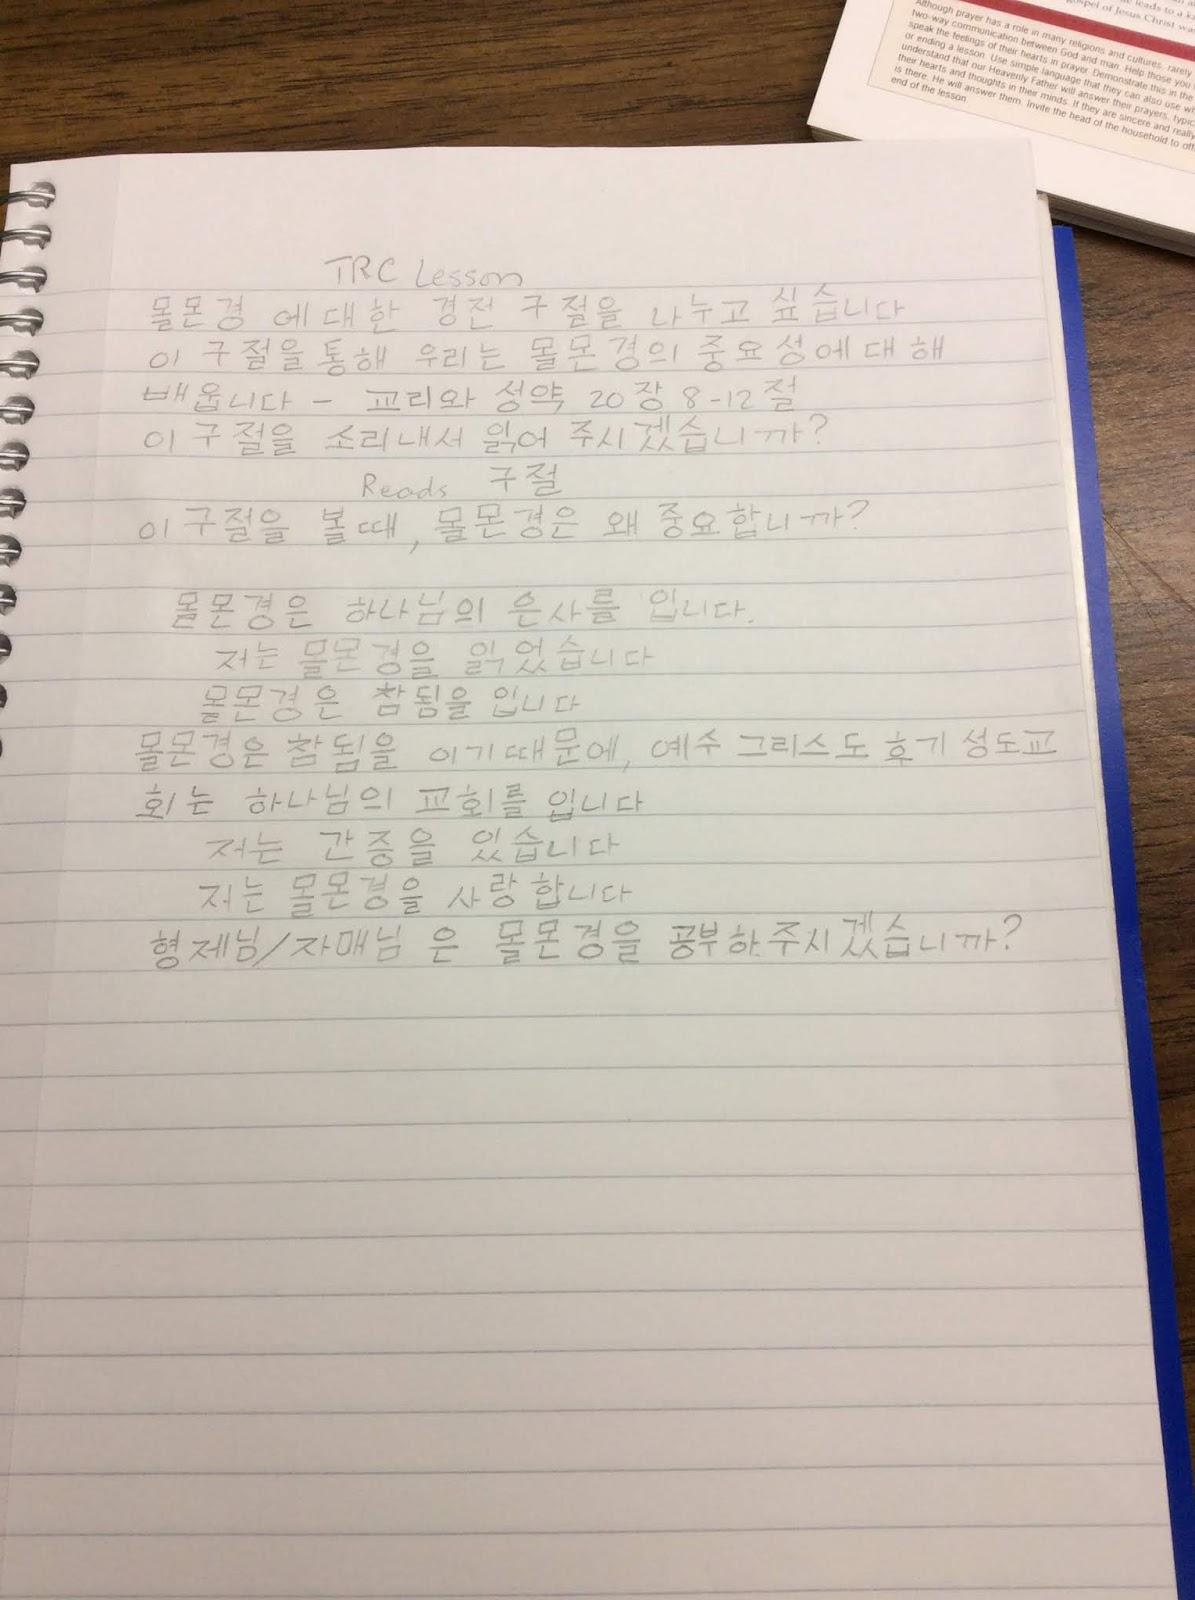 leads to a k
gospel of Jesus Christ wa
Although prayer has a role in many religions and cultures, rarely
two-way communication between God and man. Help those you
speak the feelings of their hearts in prayer. Demonstrate this in the
or ending a lesson. Use simple language that they can also use wh
understand that our Heavenly Father will answer their prayers, typic
their hearts and thoughts in their minds. If they are sincere and really
is there, He will answer them. Invite the head of the household to off
end of the lesson.
TRC Lesson
몰몬경 에대한 경전 구절을 나누고 싶습니다
이 구절을통해 우리는 몰몬경의 중요성에대해
배웁니다 - 교리와 성약 20장 8-12절
이구절을 소리내서 읽어 주시겠습니까?
Reads 구절
이구절을 볼때, 몰몬경은 왜 중요합니까?
몰몬경은 하나님의 은사를 입니다.
저는 몰몬경을 읽었습니다
몰몬경은 참됨을입니다
몰몬경은참됨을 이기때문에, 예수 그리스도 후기 성도교
회는 하나님의 교회를입니다
저는 간증을 있습니다
저는 몰몬경을 사랑합니다
형제님/자매님 은 몰몬경을 공부하.주시겠습니까?